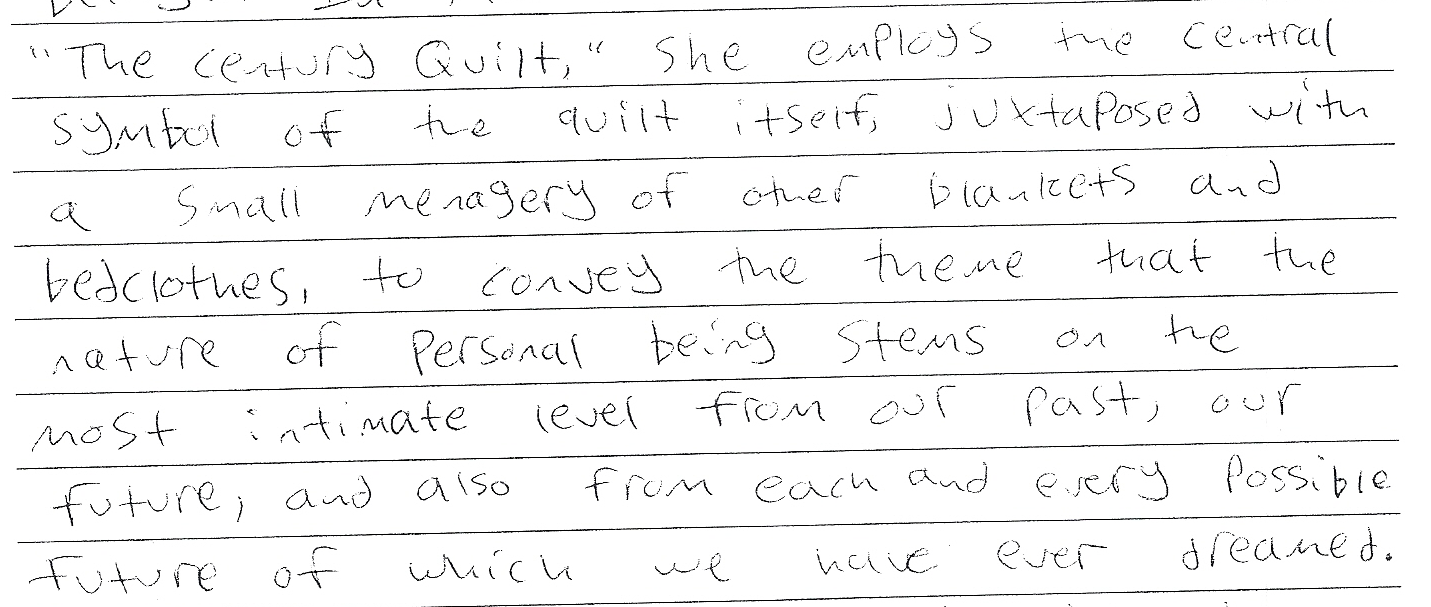 "The century Quilt," She employs the central
symbol of the quilt itself, juxtaposed with
a small menagery of other blankets and
bedclothes, to convey the theme that the
nature of personal being stems on the
most intimate level from our past, our
future, and also from each and every possible
future of which we have ever dreamed.